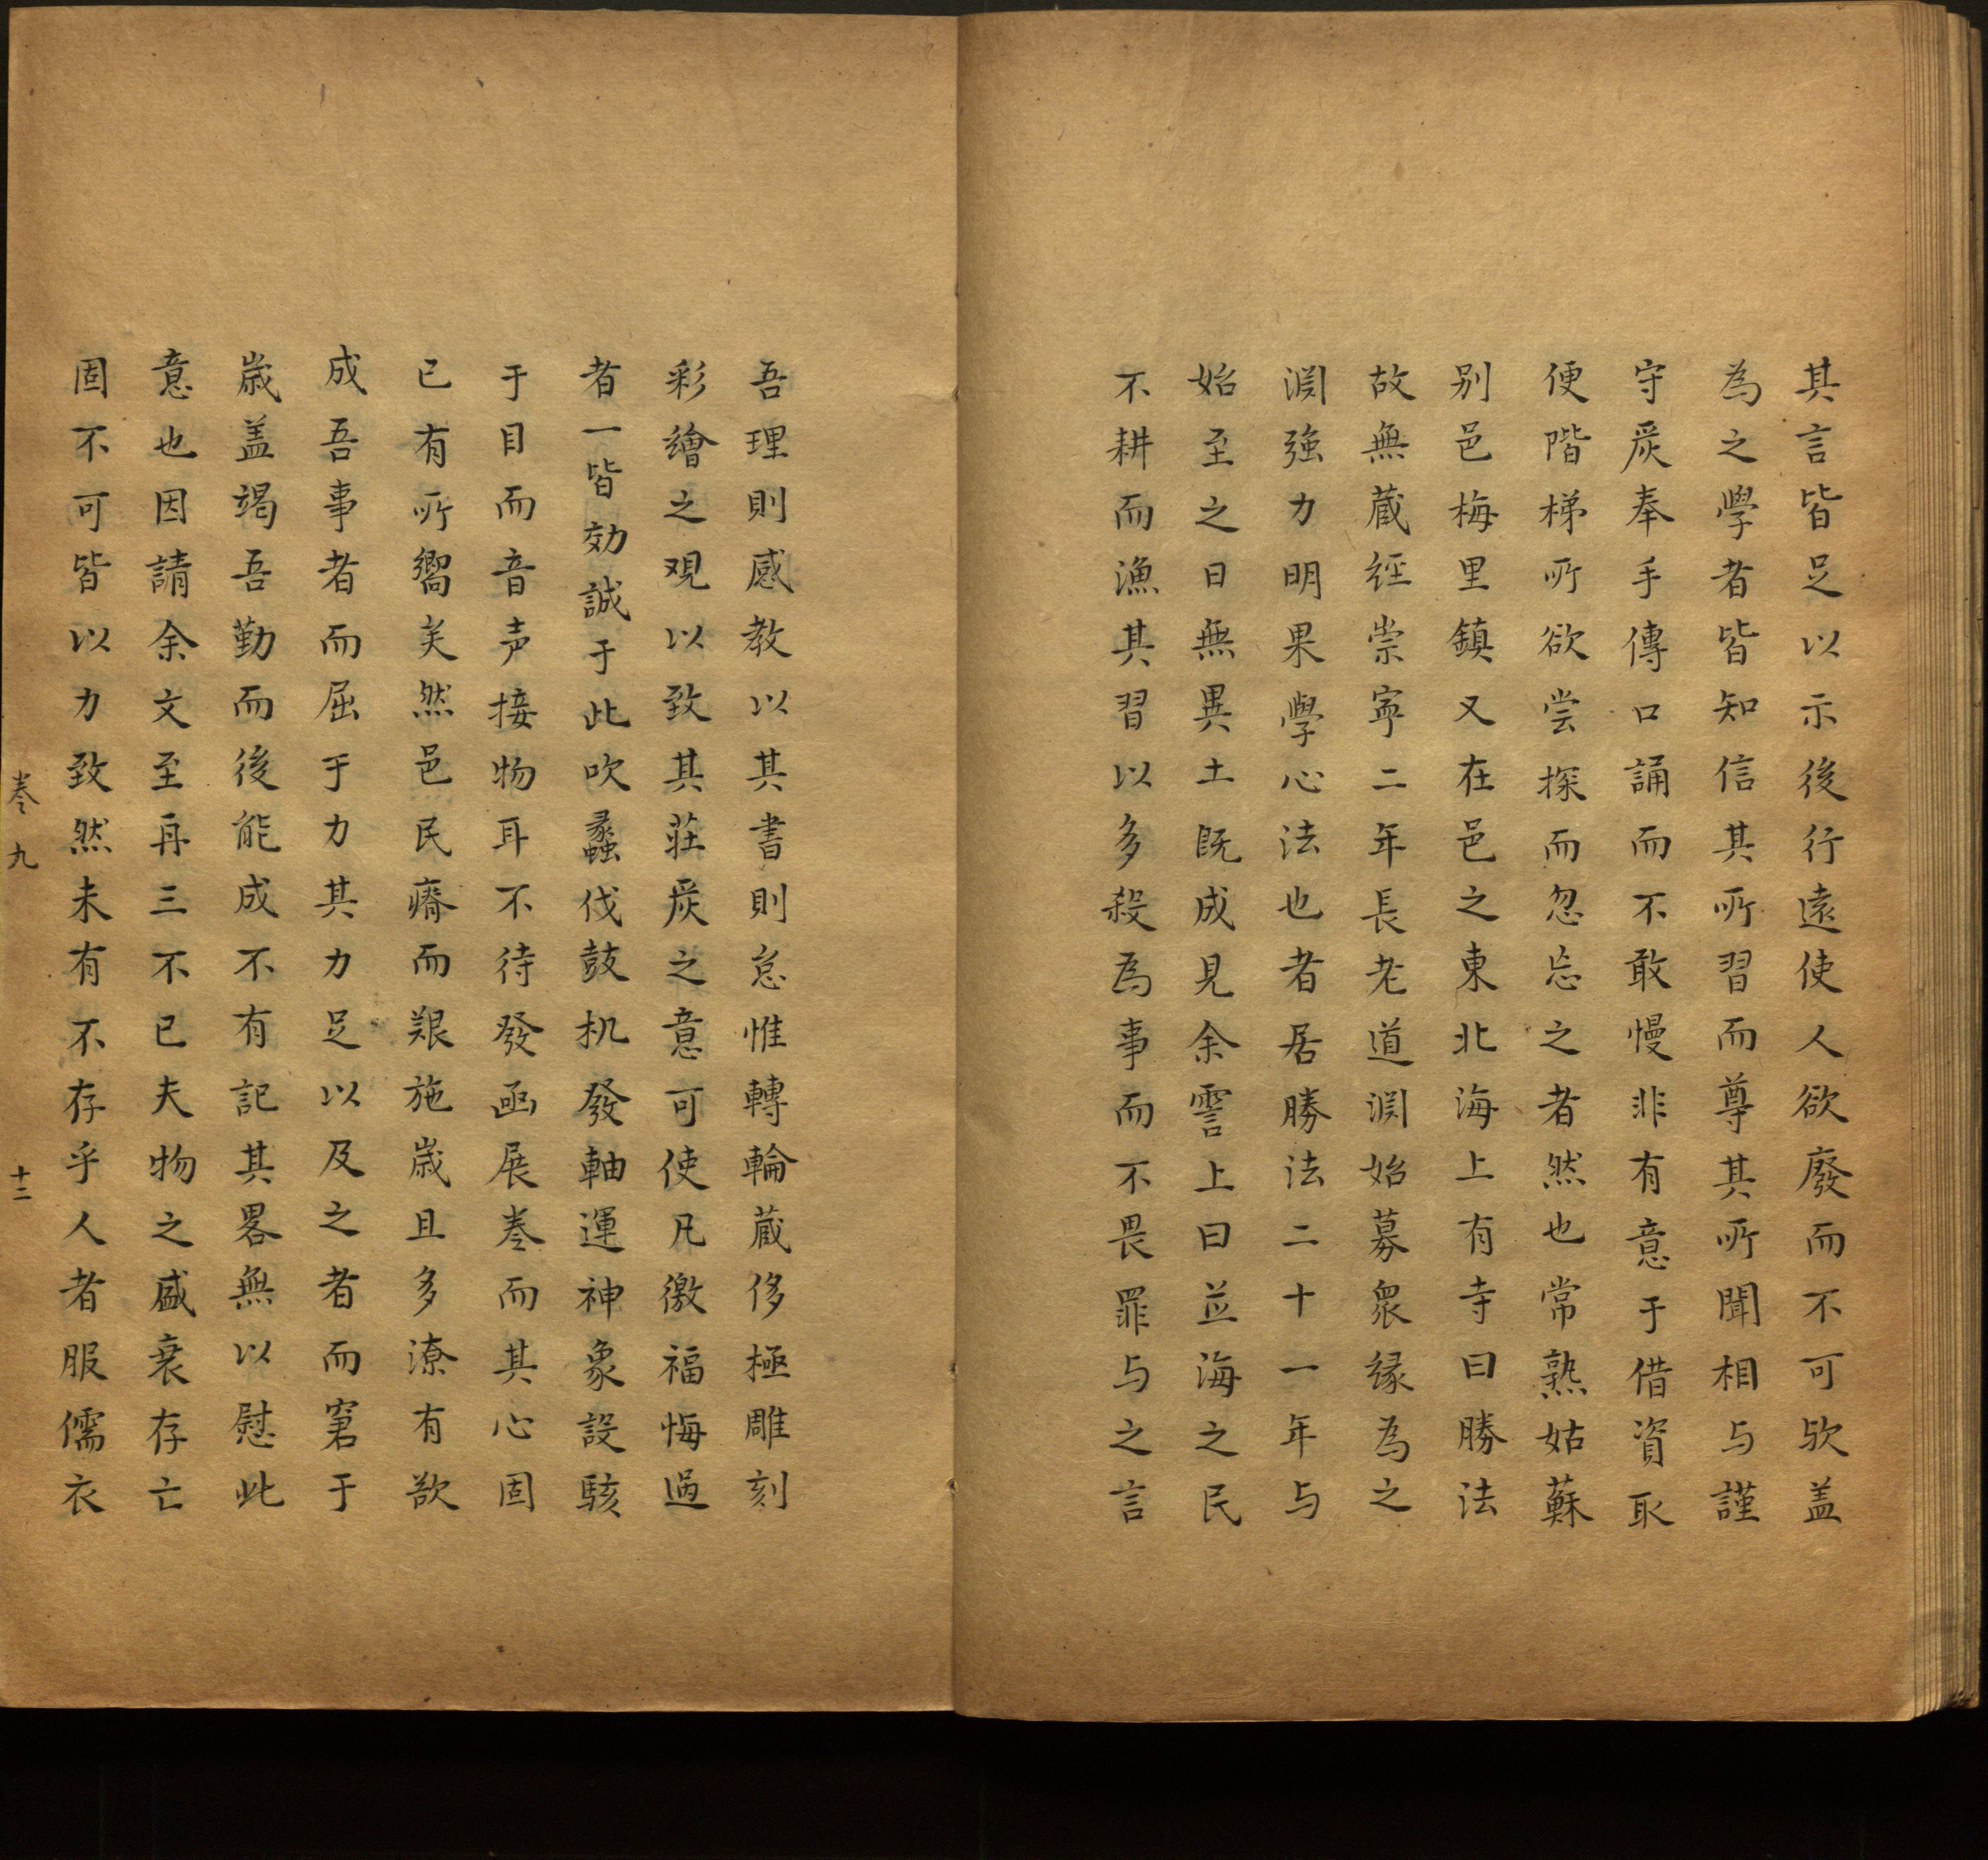 其言皆足以示後行遠使人欲廢而不可欤盖
為之學者皆知信其所習而尊其所聞相与謹
守嚴奉手傳口誦而不敢慢非有意于借資取
便階梯所欲尝探而忽忘之者然也常熟姑蘇
别邑梅里鎮又在邑之東北海上有寺曰勝法
故無蔵経崇寧二年長老道渊始募衆縁為之
渊強力明果學心法也者居勝法二十一年与
始至之日無異土既成見余霅上曰並海之民
不耕而漁其習以多殺為事而不畏罪与之言
吾理則感教以其書則怠惟轉輪蔵侈極雕刻
彩繪之观以致其莊嚴之意可使凡徼福悔過
者一皆効誠于此吹蠡伐鼓机發軸運神象設駭
于目而音声接物耳不待發函展巻而其心固
已有所嚮矣然邑民瘠而艱施歲且多潦有欲
成吾事者而屈于力其力足以及之者而窘于
歲盖竭吾勤而後能成不有記其畧無以慰此
意也因請余文至再三不已夫物之盛衰存亡
固不可皆以力致然未有不存乎人者服儒衣
巻九
十二